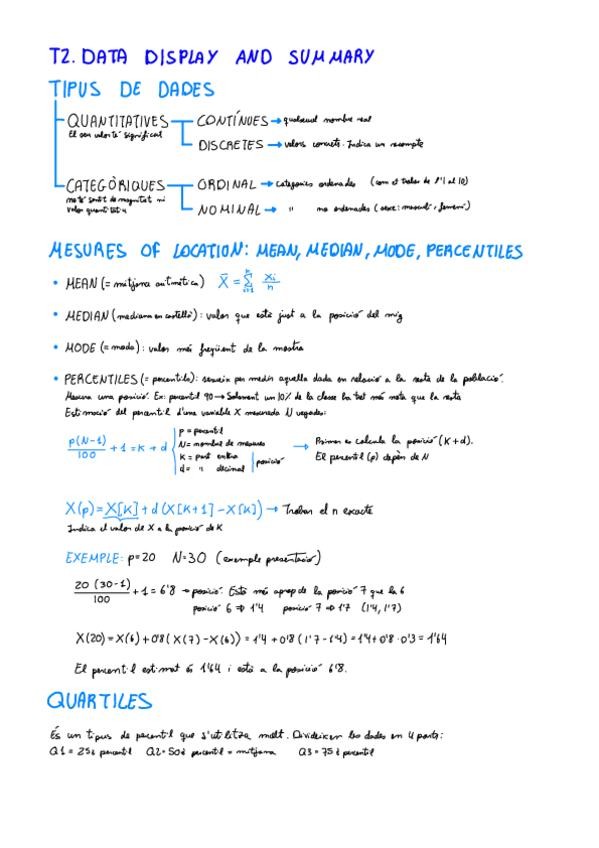 T2. DATA DISPLAY AND SUMMARY
TIPUS DE DADES
QUANTITATIVES
El seu valor té significat
CONTÍNUES → qualsevol nombre real
DISCRETES → valors concrets. Indica un recompte
CATEGÒRIQUES
no té sentit de magnitud ni
valor quantitatiu
ORDINAL → categories ordenades (com el de l'1 al 10)
NOMINAL → " no ordenades (sexe: masculí, femení)
MESURES OF LOCATION: MEAN, MEDIAN, MODE, PERCENTILES
• MEAN (= mitjana aritmètica) X̄ = Σ i=1 n xi/n
• MEDIAN (mediana en castellà): valor que està just a la posició del mig
• MODE (= moda): valor més freqüent de la mostra
• PERCENTILES (= percentils): serveix per medir aquella dada en relació a la resta de la població.
Mesura una posició. Ex: percentil 90 → Solament un 10% de la classe ha tret més nota que la resta
Estimació del percentil d'una variable X mesurada N vegades:
p(N-1)/100 + 1 = K + d
p = percentil
N = nombre de mesures
K = part entera
d = " decimal
posició
→ Primer es calcula la posició (K+d).
El percentil (p) depèn de N
X(p) = X[K] + d(X[K+1] - X[K]) → Trobar el n exacte
Indica el valor de X a la posició de K
EXEMPLE: p=20 N=30 (exemple presentació)
20 (30-1)/100 + 1 = 6'8 → posició. Està més aprop de la posició 7 que la 6
posició 6 ⇒ 1'4 posició 7 ⇒ 1'7 (1'4, 1'7)
X(20) = X(6) + 0'8 (X(7) - X(6)) = 1'4 + 0'8 (1'7 - 1'4) = 1'4 + 0'8 · 0'3 = 1'64
El percentil estimat és 1'64 i està a la posició 6'8.
QUARTILES
És un tipus de percentil que s'utilitza molt. Divideixen les dades en 4 parts:
Q1 = 25è percentil Q2 = 50è percentil = mitjana Q3 = 75è percentil